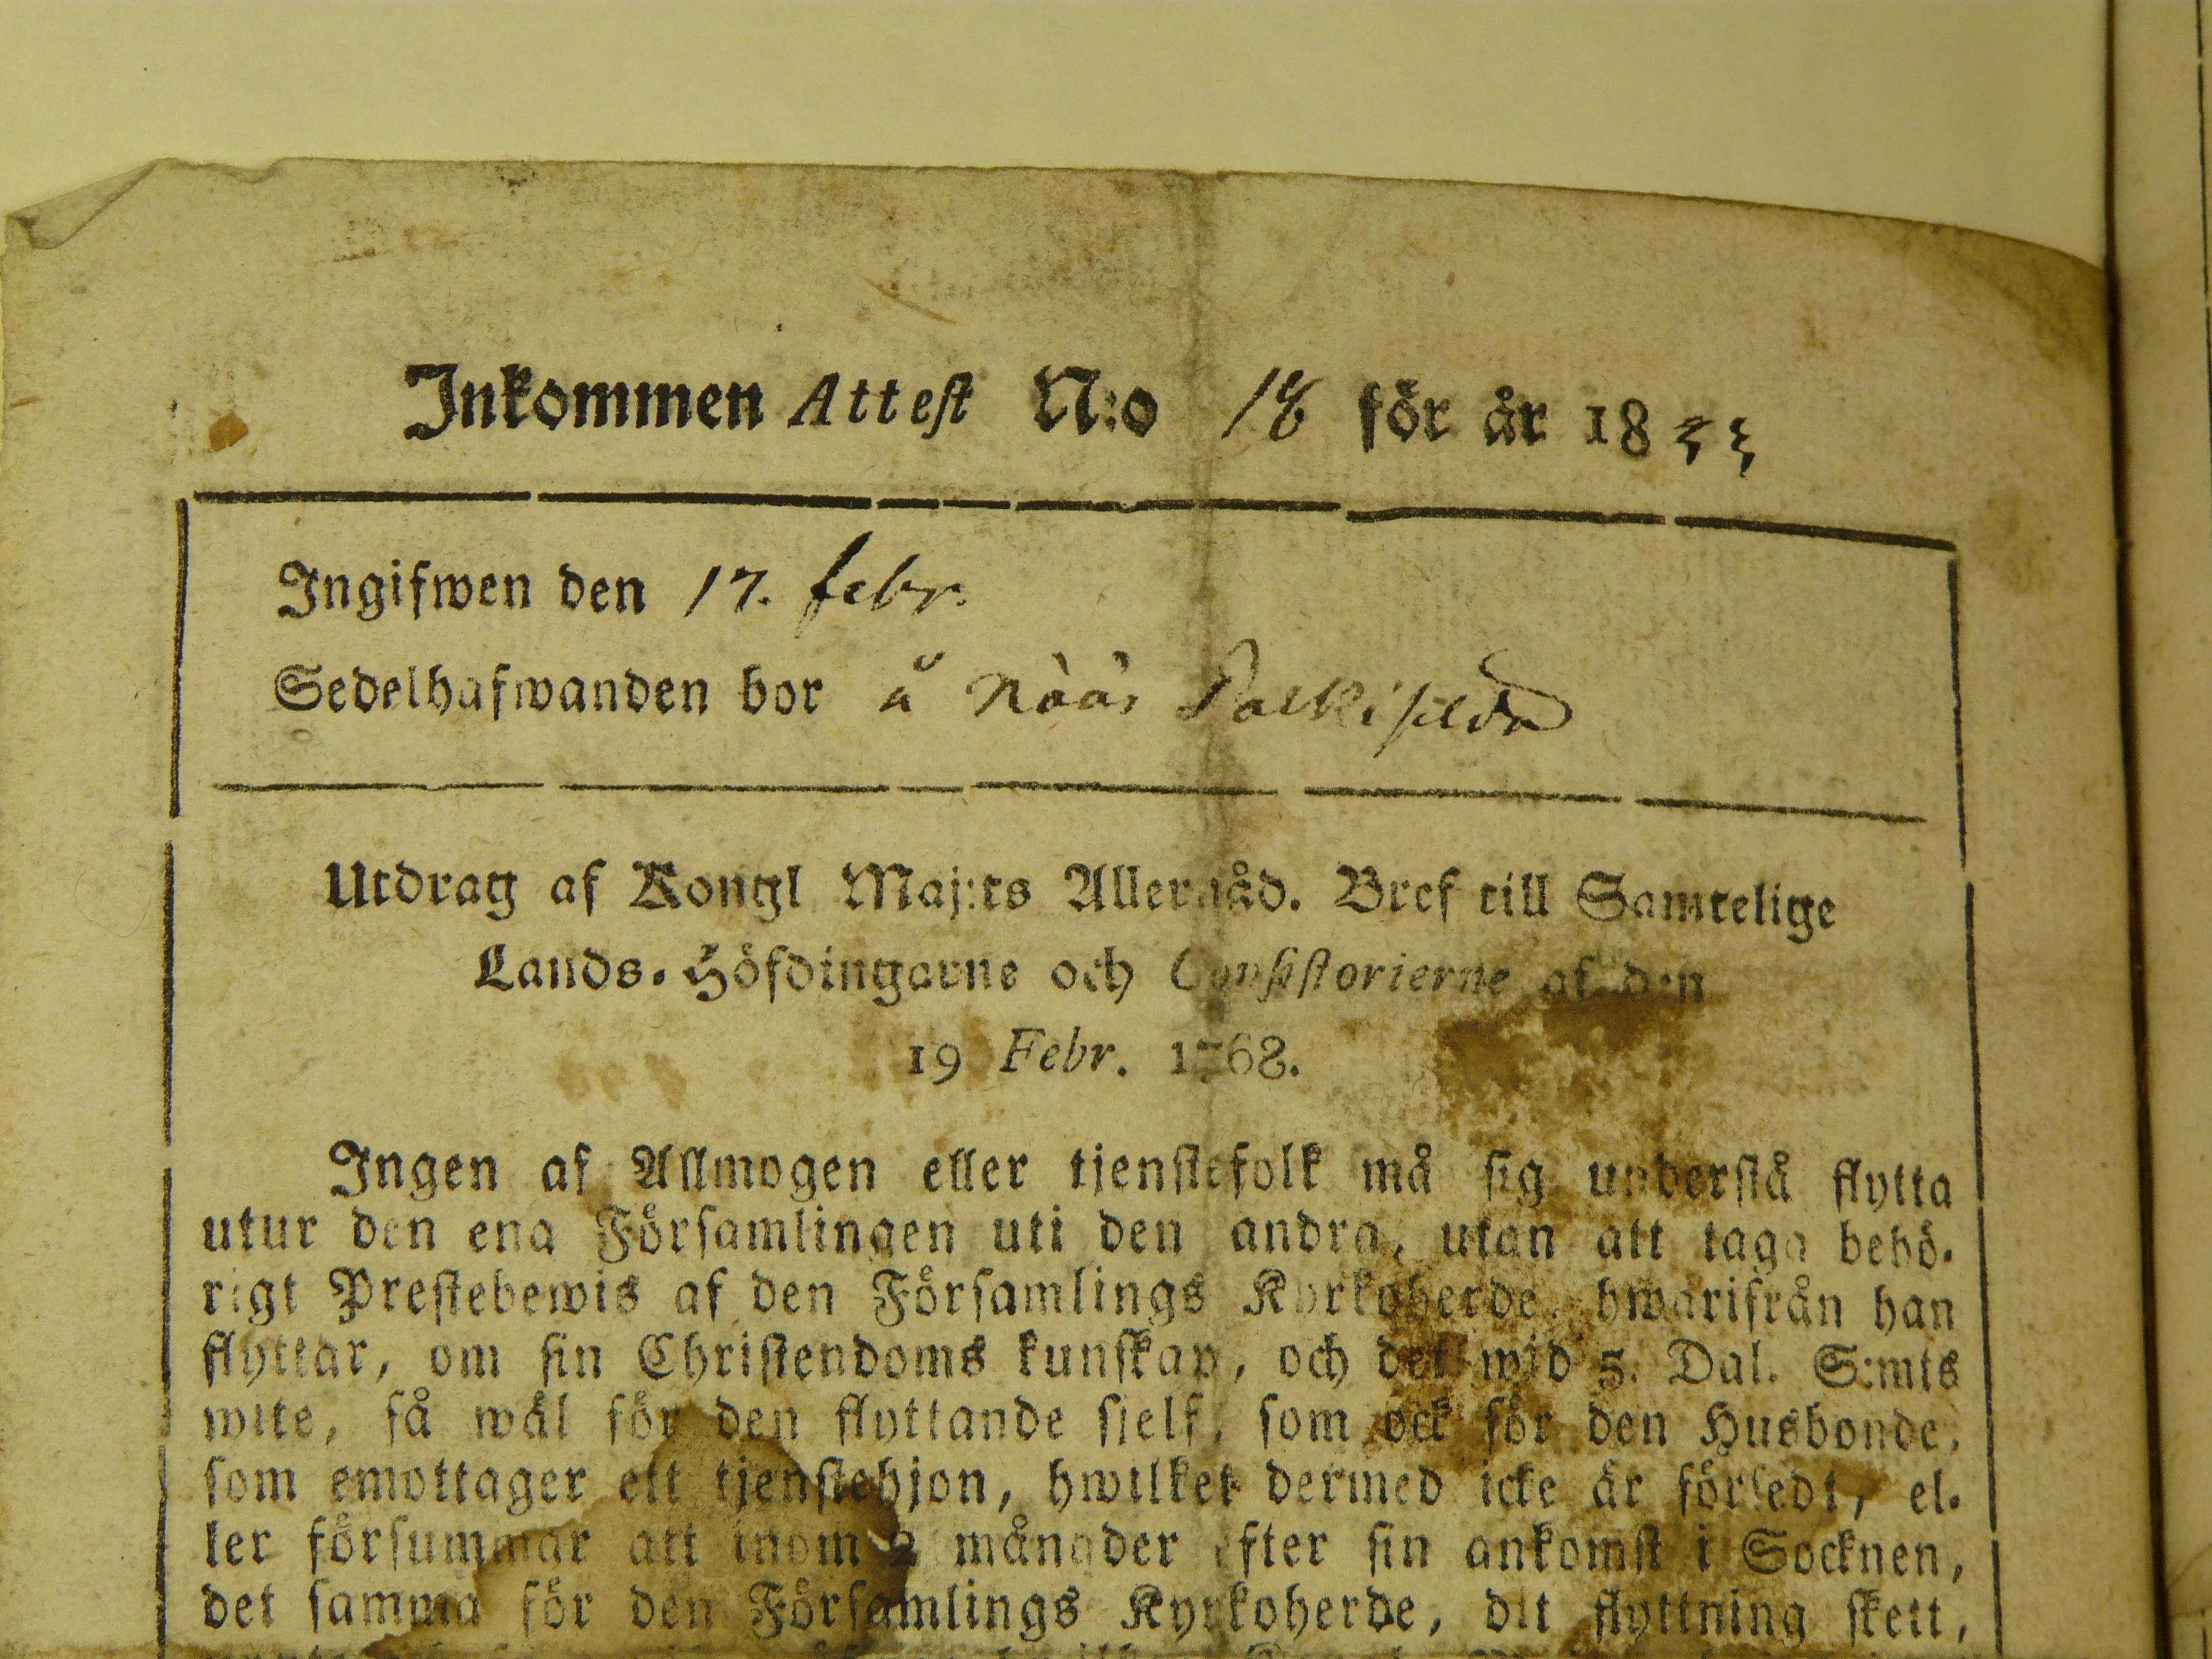 Inkommen Attest N:o 18 för år 1833
Ingifwen den 17. febr.
Sedelhafwanden bor å Nääs
Utdrag af Kongl Maj:ts Allernåd. Bref till Samtelige
Lands-Höfdingarne och Consistorierne af den
19 Febr. 1768.
Ingen af Allmogen eller tjenstefolk må sig understå flytta
utur den ena Församlingen uti den andra, utan att taga behö-
rigt Prestebewis af den Församlings Kyrkoherde, hwarifrån han
flyttar, om sin Christendoms kunskap, och det wid 5. Dal. S:mts
wite, så wäl för den flyttande sjelf, som ock för den Husbonde,
som emottager ett tjenstehjon, hwilket dermed icke är försedt, el-
ler försummar att inom 2 månader efter sin ankomst i Socknen,
det samma för den Församlings Kyrkoherde, dit flyttning skett,